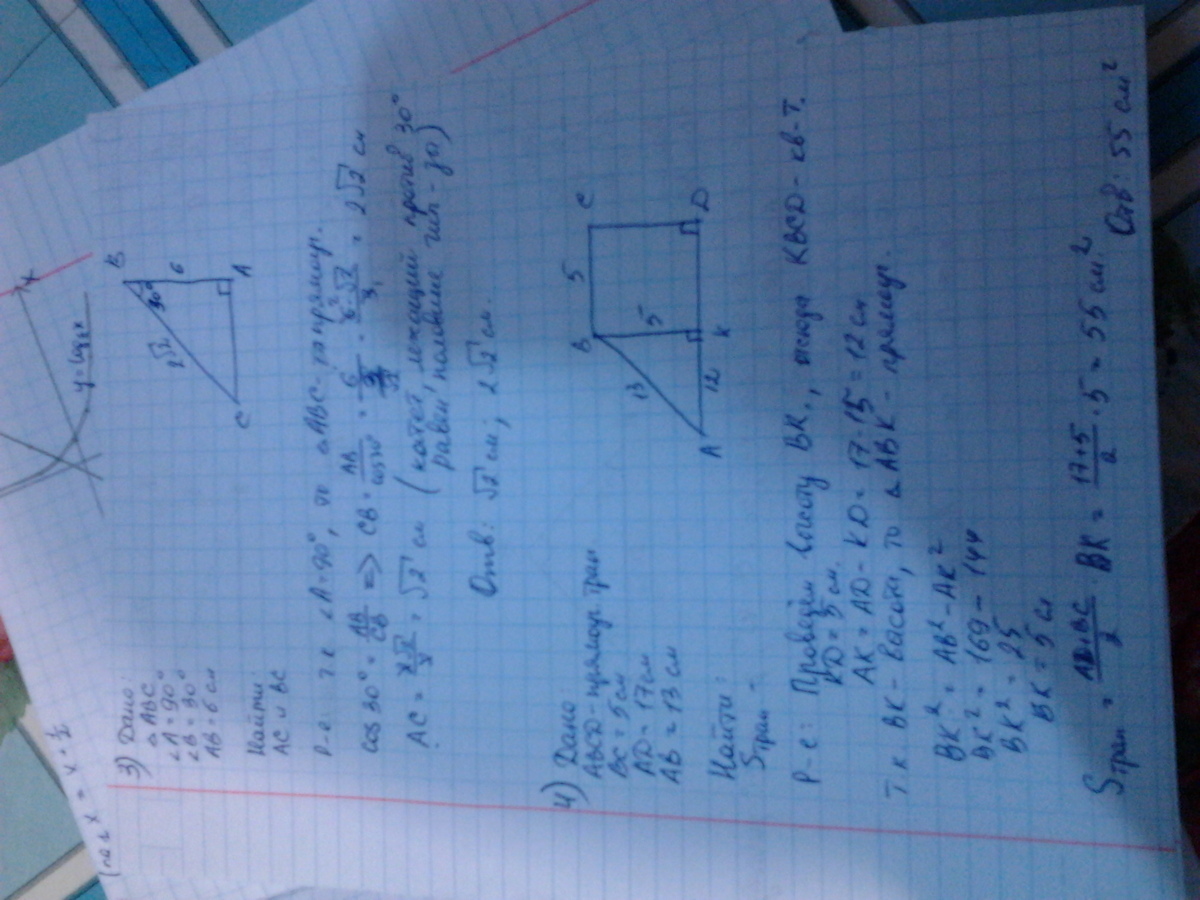 y = log₂x
x
3) Дано:
△ABC
∠A = 90°
∠B = 30°
AB = 6 см
Найти:
AC и BC
B
30°
6
2√2
C
A
Р-е: т.к ∠A = 90°, то △ABC - прямоуг.
cos 30° = AB/CB => CB = AB/cos30 = 6 · √2 / = 2√2 см
AC = 2√2/2 = √2 см (катет, лежащий против 30° равен половине гип-зы)
Отв: √2 см; 2√2 см.
4) Дано
ABCD - прямоуг. трап
BC = 5 см
AD = 17 см
AB = 13 см
Найти:
Sтрап -
B
5
C
13
5
A
12
K
D
Р-е: Проведём высоту BK., отсюда KBCD - кв-т.
KD = 5 см.
AK = AD - KD = 17 - 15 = 12 см
Т.к. BK - высота, то △ABK - прямоуг.
BK² = AB² - AK²
BK² = 169 - 144
BK² = 25
BK = 5 см
Sтрап = AD+BC/2 · BK = 17+5/2 · 5 = 55 см.² Отв: 55 см²